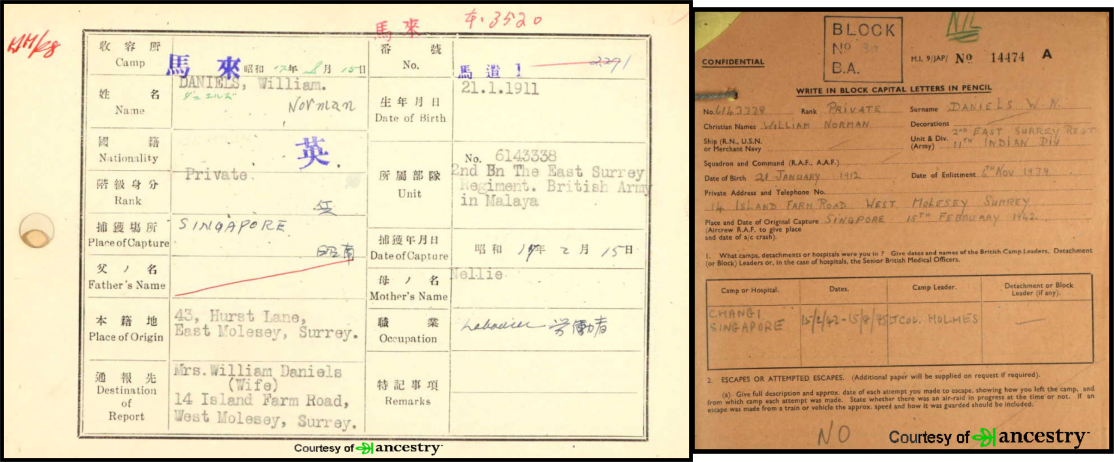 馬來 キ.3520
收容所
Camp
馬來 昭和 17年 8月 15日
番號
No.
馬遣1 2291
姓名
Name
DANIELS, William.
ダニエルズ
Norman
生年月日
Date of Birth
21.1.1911
國籍
Nationality
英.
階級身分
Rank
Private.
所屬部隊
Unit
No. 6143338
2nd Bn The East Surrey
Regiment. British Army
in Malaya
捕獲場所
Place of Capture
SINGAPORE.
昭南
捕獲年月日
Date of Capture
昭和 17年 2月 15日
父ノ名
Father's Name
母ノ名
Mother's Name
Nellie
本籍地
Place of Origin
43, Hurst Lane,
East Molesey, Surrey.
職業
Occupation
Labourer 労働者
通報先
Destination
of
Report
Mrs.William Daniels
(Wife)
14 Island Farm Road,
West Molesey, Surrey.
特記事項
Remarks
Courtesy of ancestry™
BLOCK
No 30
B.A.
NIL
CONFIDENTIAL
M.I. 9/JAP/ No 14474 A
WRITE IN BLOCK CAPITAL LETTERS IN PENCIL
No. 6143338 Rank PRIVATE Surname DANIELS W.N.
Christian Names WILLIAM NORMAN Decorations
Ship (R.N., U.S.N.
or Merchant Navy
Unit & Div.
(Army)
2ND EAST SURREY REGT
11TH INDIAN DIV
Squadron and Command (R.A.F., A.A.F.)
Date of Birth 21 JANUARY 1912 Date of Enlistment 8TH NOV 1939
Private Address and Telephone No.
14 ISLAND FARM ROAD WEST MOLESEY SURREY
Place and Date of Original Capture SINGPORE 15TH FEBRUARY 1942.
(Aircrew R.A.F. to give place
and date of a/c crash).
1. What camps, detachments or hospitals were you in? Give dates and names of the British Camp Leaders, Detachment
(or Block) Leaders or, in the case of hospitals, the Senior British Medical Officers.
Camp or Hospital. Dates. Camp Leader. Detachment or Block
Leader (if any).
CHANGI
SINGAPORE 15/2/42-15/8/45 COL. HOLMES —
2. ESCAPES OR ATTEMPTED ESCAPES. (Additional paper will be supplied on request if required).
(a) Give full description and approx. date of each attempt you made to escape, showing how you left the camp, and
from which camp each attempt was made. State whether there was an air-raid in progress at the time or not. If an
escape was made from a train or vehicle the approx. speed and how it was guarded should be included.
NO
Courtesy of ancestry™